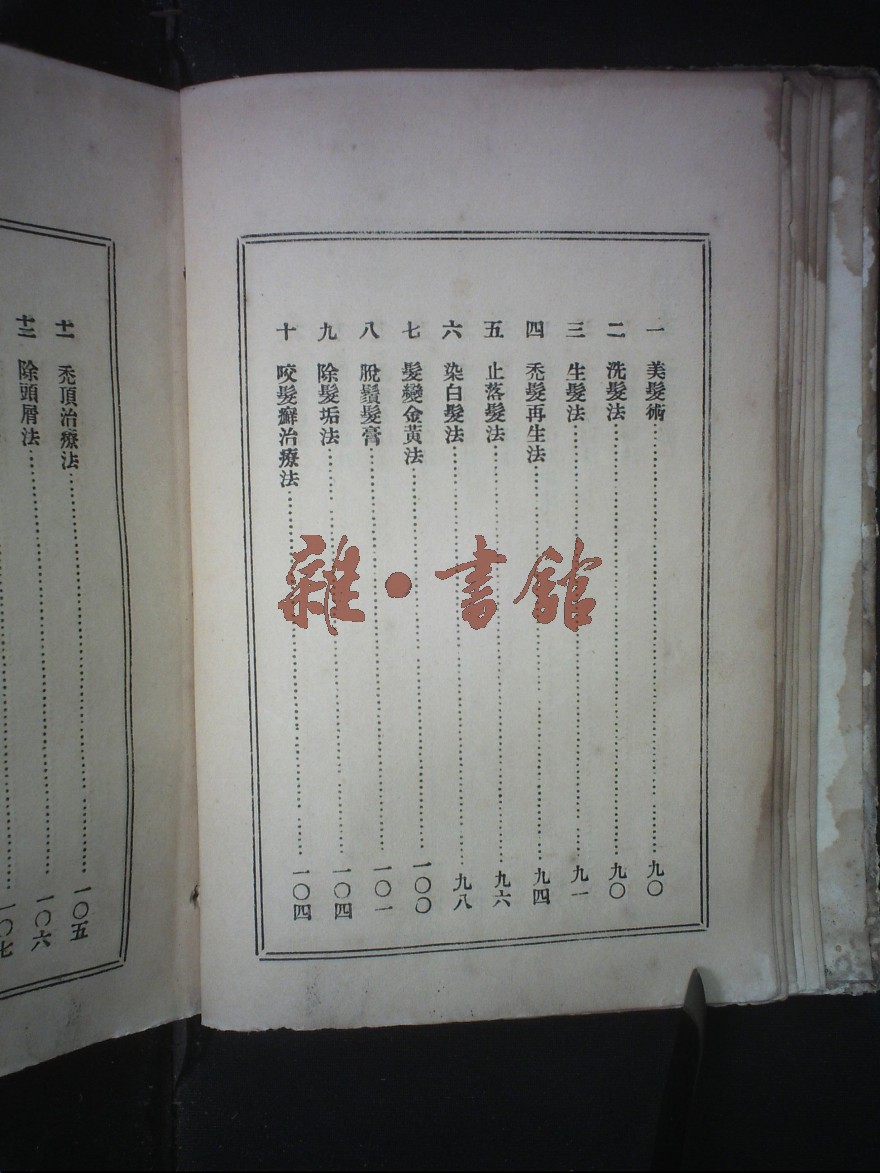 一 美髮術……九〇
二 洗髮法……九〇
三 生髮法……九一
四 禿髮再生法……九四
五 止落髮法……九六
六 染白髮法……九八
七 髮變金黃法……一〇〇
八 脫鬚髮膏……一〇一
九 除髮垢法……一〇四
十 咬髮癬治療法……一〇四
十一 禿頂治療法……一〇五
十二 除頭屑法……一〇六
一〇七
雜·書館